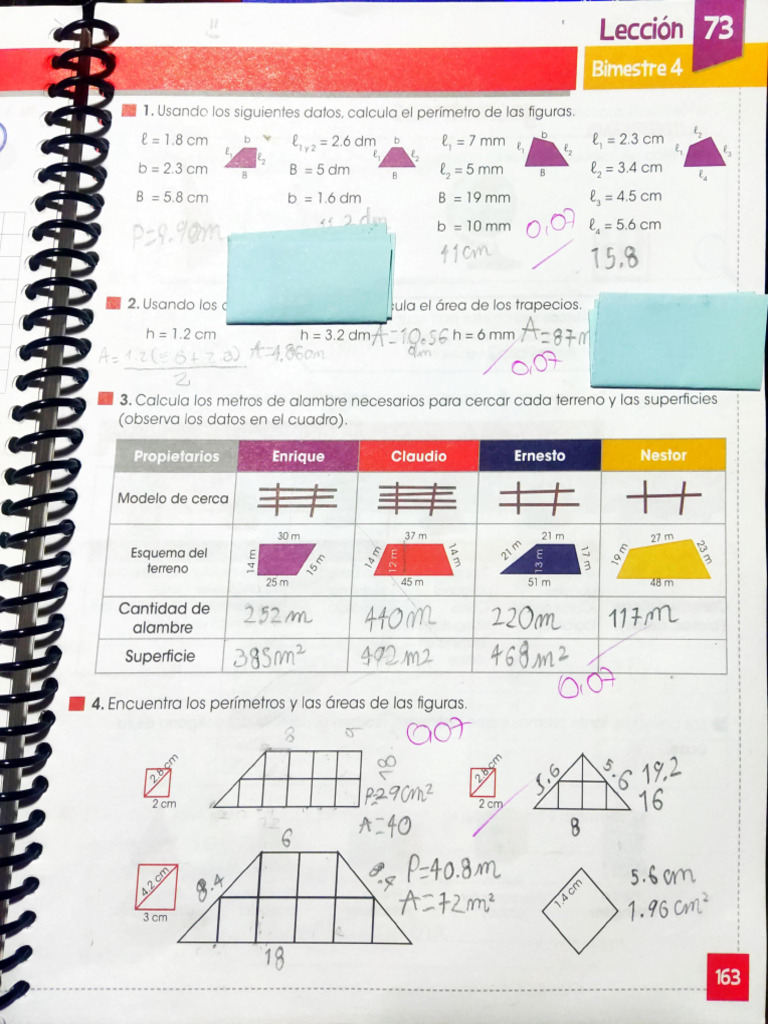 Lección 73
Bimestre 4
1. Usando los siguientes datos, calcula el perímetro de las figuras.
ℓ = 1.8 cm
b = 2.3 cm
B = 5.8 cm
b
ℓ₁ ℓ₂
B
ℓ₁ y ₂ = 2.6 dm
B = 5 dm
b = 1.6 dm
b
ℓ₁ ℓ₂
B
ℓ₁ = 7 mm
ℓ₂ = 5 mm
B = 19 mm
b = 10 mm
b
ℓ₁ ℓ₂
B
ℓ₁ = 2.3 cm
ℓ₂ = 3.4 cm
ℓ₃ = 4.5 cm
ℓ₄ = 5.6 cm
ℓ₂
ℓ₁ ℓ₃
ℓ₄
11.2 dm
41cm
0.07
15.8
2. Usando los
cula el área de los trapecios.
h = 1.2 cm
h = 3.2 dm
A=10.56
dm
h = 6 mm
A=87
A=4.86cm
2
0.07
3. Calcula los metros de alambre necesarios para cercar cada terreno y las superficies
(observa los datos en el cuadro).
Propietarios Enrique Claudio Ernesto Nestor
Modelo de cerca
Esquema del
terreno
30 m
14 m 15 m
25 m
37 m
14 m 12 m 14 m
45 m
21 m
21 m 13 m 17 m
51 m
27 m
19 m 23 m
48 m
Cantidad de
alambre
252m 440m 220m 117m
Superficie 385m² 492m2 468m²
0.07
4. Encuentra los perímetros y las áreas de las figuras.
0.07
2.8 cm
2 cm
8
18
P=29cm²
A=40
2.8 cm
2 cm
5.6 5.6
8
19.2
16
4.2 cm
3 cm
6
8.4 8.4
18
P=40.8m
A=72m²
1.4 cm
5.6cm
1.96cm²
163